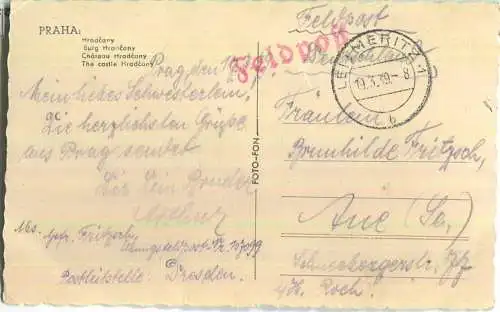 PRAHA:
Hradčany
Burg Hradčany
Château Hradčany
The castle Hradčany
Prag, den
Mein liebes Schwesterlein,
Die herzlichsten Grüße
aus Prag sendet
Dir Dein Bruder
Abs. Fritzsch,
Postleitstelle Dresden.
FOTO-FON
Feldpost
Feldpost
Deutschland
LEITMERITZ 1
19.3.39 - 8
b
Fräulein
Brunhilde Fritzsch,
Aue (Sa.)
Schneebergerstr.